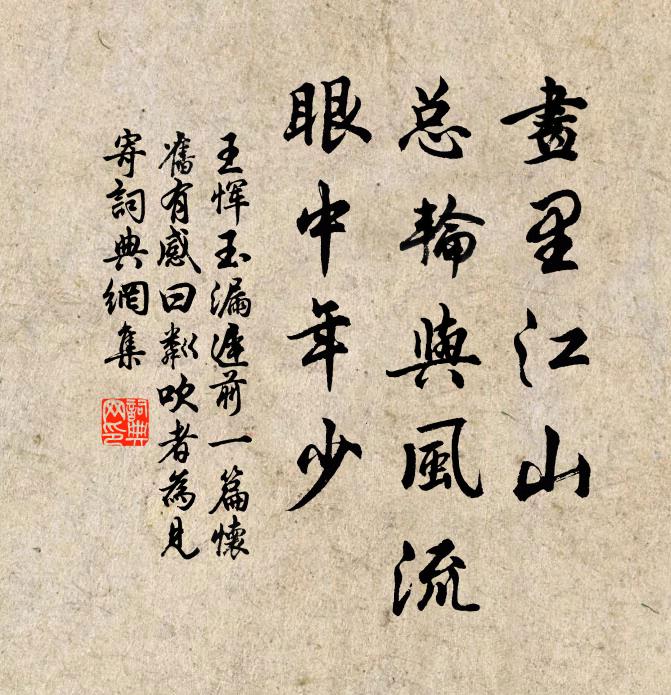 畫里江山
总輪與風流
眼中年少
王恽玉漏遲前一篇懷
舊有感曰鄰吹者為見
寄詞典網集
詞典
网印